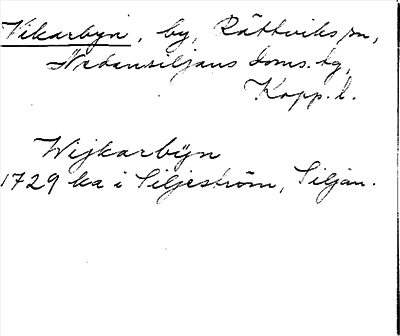 Vikarbyn, by, Rättviks sn,
Nedansiljans doms. tg,
Kopp. l.
Wijkarbÿn
1729 ka i Siljeström, Siljan.